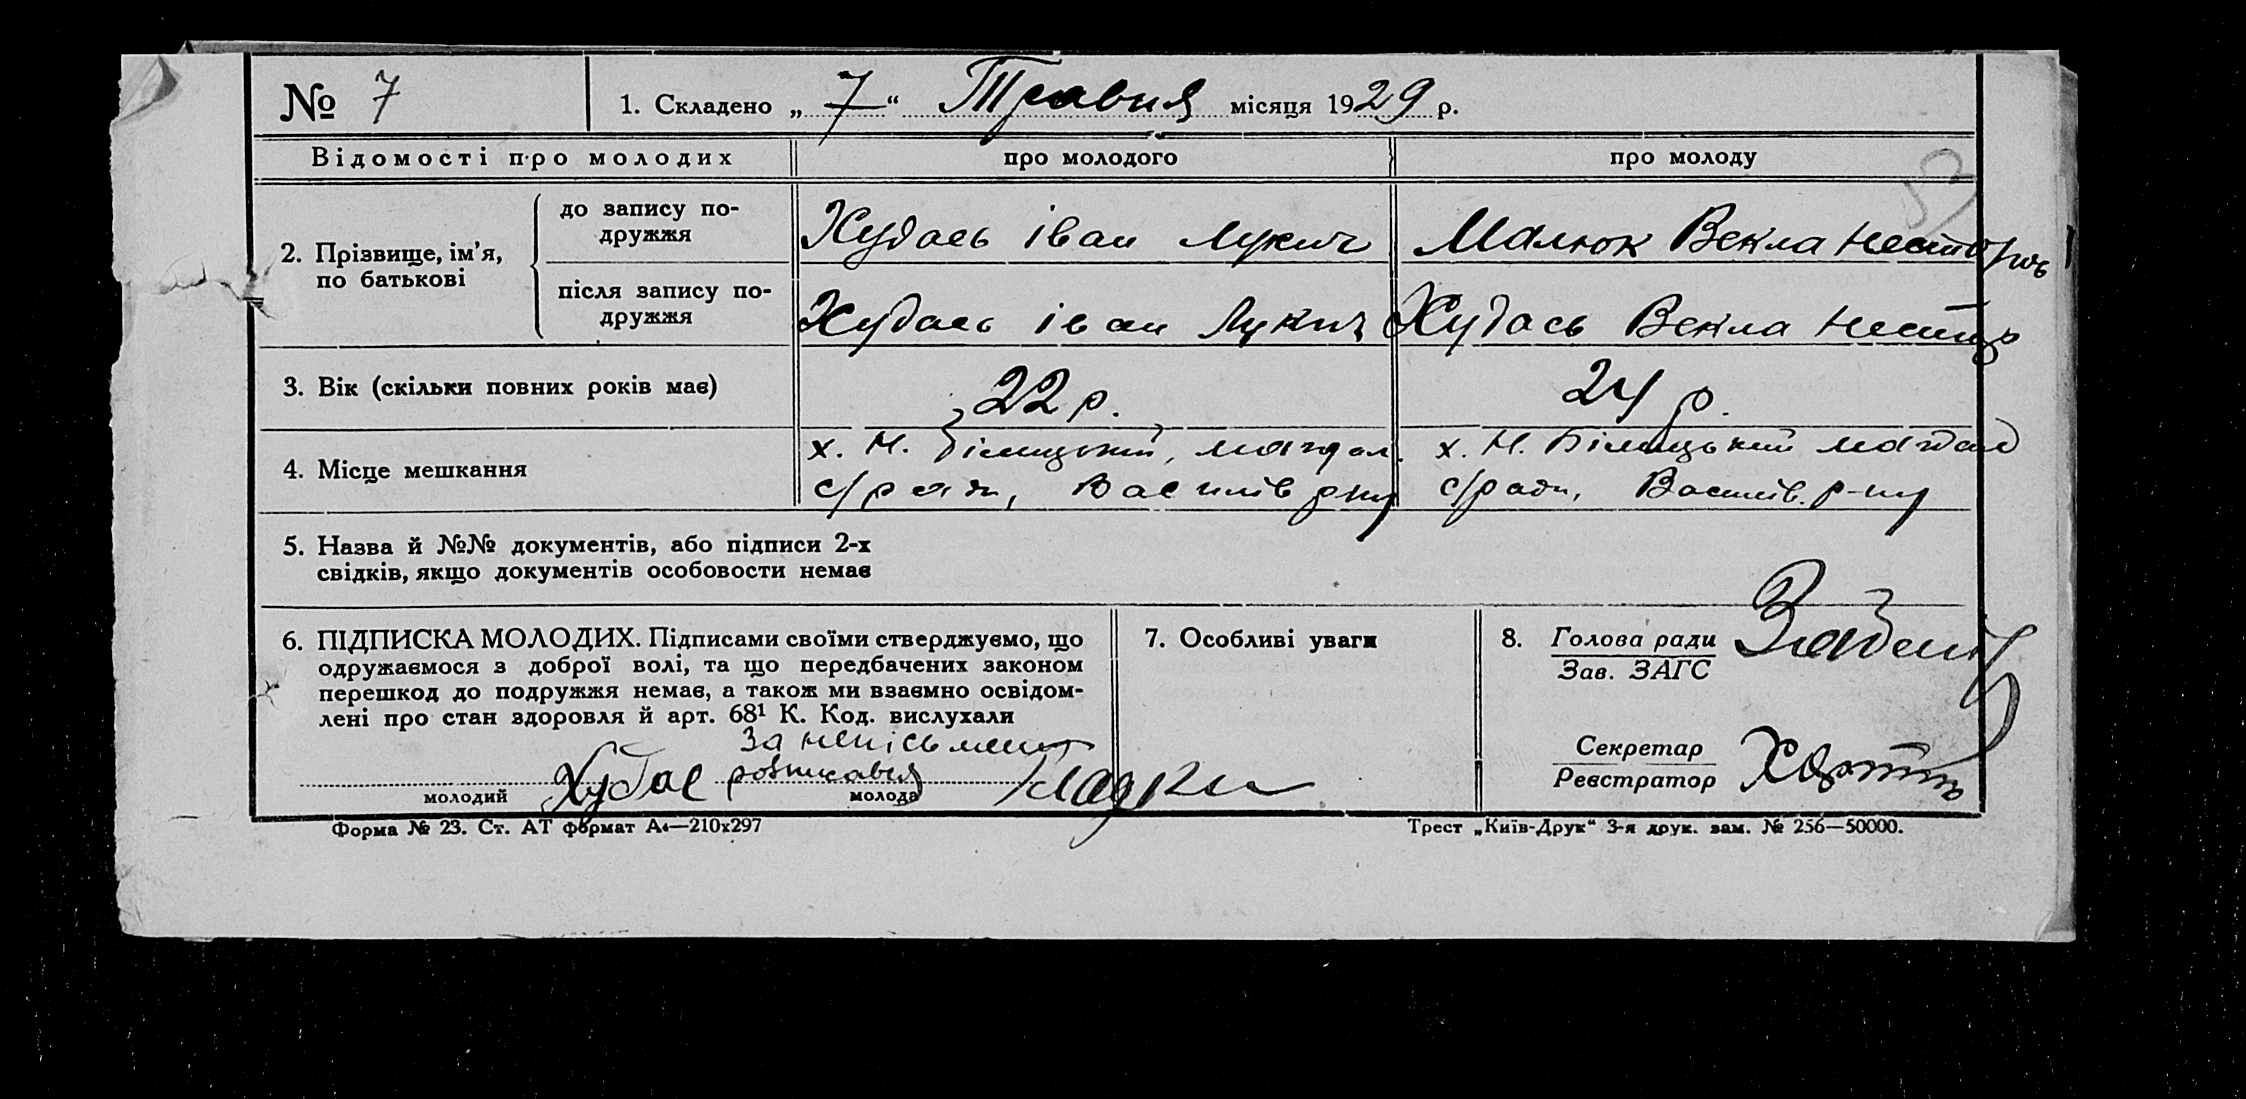 № 7
1. Складено „ 7 “ Травня місяця 1929 р.
Відомості про молодих
про молодого
про молоду
2. Прізвище, ім'я,
по батькові
до запису по-
дружжя
Худась іван Лукич
Малюк Векла Нестор
після запису по-
дружжя
Худась іван Лукич
Худась Векла Нестор
3. Вік (скільки повних років має)
22 р.
24 р.
4. Місце мешкання
х. Н. Білицький, майдан.
с/ради, Василів р-ну
х. Н. Білицький майдан
с/ради, Василів. р-ну
5. Назва й №№ документів, або підписи 2-х
свідків, якщо документів особовости немає
6. ПІДПИСКА МОЛОДИХ. Підписами своїми стверджуємо, що
одружаємося з доброї волі, та що передбачених законом
перешкод до подружжя немає, а також ми взаємно освідом-
лені про стан здоровля й арт. 68¹ К. Код. вислухали
За неписьмен
Худас розписався
молодий
молода
7. Особливі уваги
8. Голова ради
Зав. ЗАГС
Секретар
Реєстратор
Форма № 23. Ст. АТ формат А₄—210х297
Трест „Київ-Друк“ 3-я друк. зам. № 256—50000.